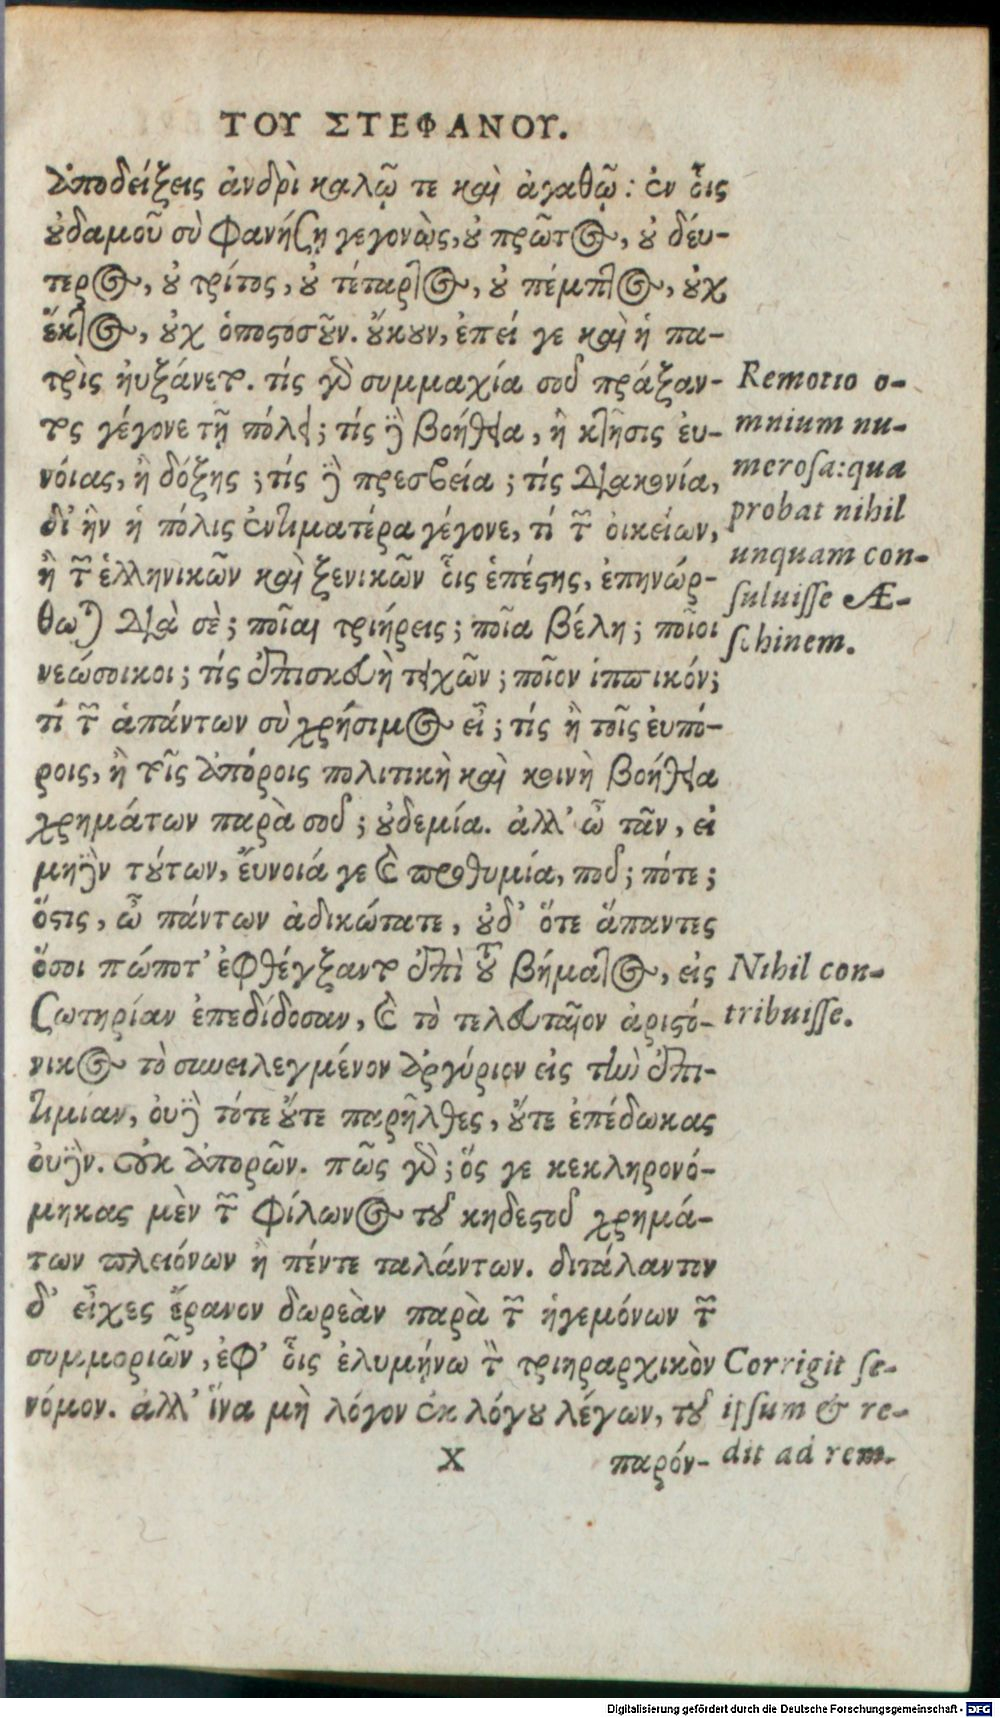 ΤΟΥ ΣΤΕΦΑΝΟΥ.
ἀποδείξεις ἀνδρὶ καλῷ τε καὶ ἀγαθῷ: ἐν οἷς
οὐδαμοῦ σὺ φανήσῃ γεγονὼς, οὐ πρῶτος, οὐ δεύ-
τερος, οὐ τρίτος, οὐ τέταρτος, οὐ πέμπτος, οὐχ
ἕκτος, οὐχ ὁποςοσοῦν. οὔκουν, ἐπεί γε καὶ ἡ πα-
τρὶς ηὐξάνετο. τίς γὰρ συμμαχία σοῦ πράξαν-
τος γέγονε τῇ πόλει; τίς δὲ βοήθεια, ἢ κτῆσις εὐ-
νόιας, ἢ δόξης; τίς δὲ πρεσβεία; τίς διακονία,
δι' ἣν ἡ πόλις ἐντιματέρα γέγονε, τί τῶν οἰκείων,
ἢ τῶν ἑλληνικῶν καὶ ξενικῶν οἷς ἐπέςης, ἐπηνώρ-
θωται διὰ σὲ; ποῖαι τριήρεις; ποῖα βέλη; ποῖοι
νεώσοικοι; τίς ἐπισκευὴ τειχῶν; ποῖον ἱππικόν;
τί τῶν ἁπάντων σὺ χρήσιμος εἶ; τίς ἢ τοῖς εὐπό-
ροις, ἢ τοῖς ἀπόροις πολιτικὴ καὶ κοινὴ βοήθεια
χρημάτων παρὰ σοῦ; οὐδεμία. ἀλλ' ὦ τᾶν, εἰ
μηδὲν τούτων, εὔνοιά γε καὶ προθυμία, ποῦ; πότε;
ὅςις, ὦ πάντων ἀδικώτατε, οὐδ' ὅτε ἅπαντες
ὅσοι πώποτ' ἐφθέγξαντο ἐπὶ τοῦ βήματος, εἰς
σωτηρίαν ἐπεδίδοσαν, καὶ τὸ τελευταῖον ἀριςό-
νικος τὸ συνειλεγμένον ἀργύριον εἰς τὴν ἐπι-
τιμίαν, οὐδὲ τότε οὔτε παρῆλθες, οὔτε ἐπέδωκας
οὐδὲν. οὐκ ἀπορῶν. πῶς γὰρ; ὅς γε κεκληρονό-
μηκας μὲν τῶν Φίλωνος τοῦ κηδεςοῦ χρημά-
των πλειόνων ἢ πέντε ταλάντων. διτάλαντον
δ' εἶχες ἔρανον δωρεὰν παρὰ τῶν ἡγεμόνων τῶν
συμμοριῶν, ἐφ' οἷς ἐλυμήνω τὸν τριηραρχικὸν
νόμον. ἀλλ' ἵνα μὴ λόγον ἐκ λόγου λέγων, τοῦ
X παρόν-
Remotio o-
mnium nu-
merosa: qua
probat nihil
unquam con-
suluisse Æ-
schinem.
Nihil con-
tribuisse.
Corrigit se-
ipsum & re-
dit ad rem.
Digitalisierung gefördert durch die Deutsche Forschungsgemeinschaft - DFG